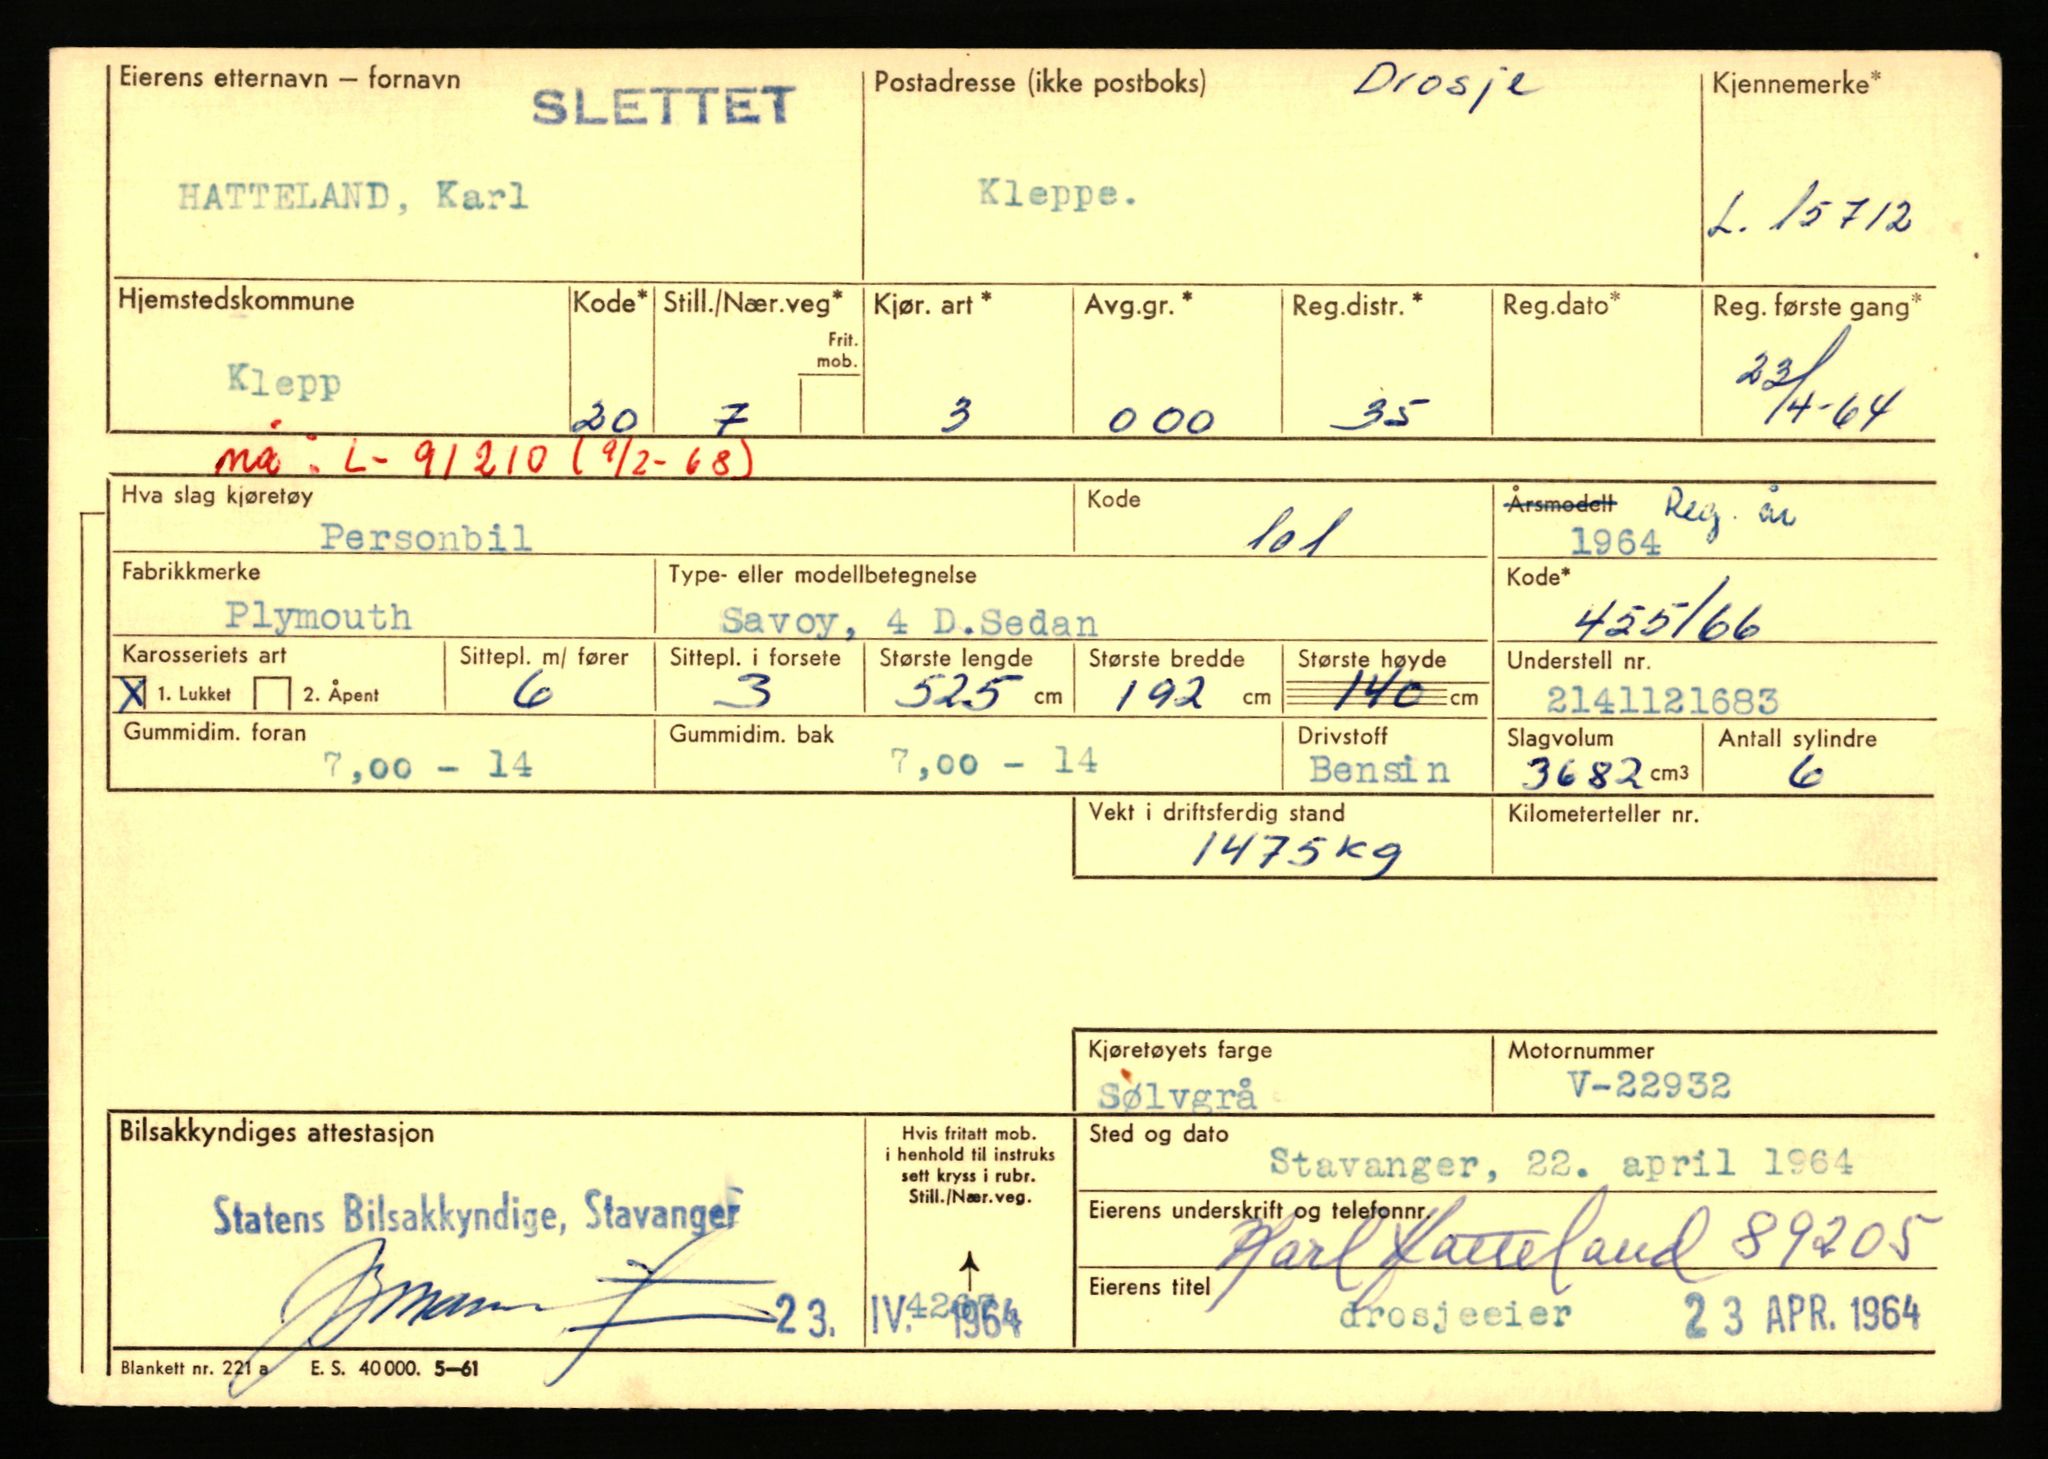 Eierens etternavn – fornavn
SLETTET
Postadresse (ikke postboks)
Drosje
Kjennemerke*
HATTELAND, Karl
Kleppe.
L. 15712
Hjemstedskommune
Kode*
Still./Nær.veg*
Frit. mob.
Kjør. art *
Avg.gr. *
Reg.distr. *
Reg.dato*
Reg. første gang*
Klepp
20
7
3
000
35
23/4-64
nå : L- 91210 (9/2-68)
Hva slag kjøretøy
Kode
Årsmodell Reg. år
Personbil
101
1964
Fabrikkmerke
Type- eller modellbetegnelse
Kode*
Plymouth
Savoy, 4 D.Sedan
455/66
Karosseriets art
Sittepl. m/ fører
Sittepl. i forsete
Største lengde
Største bredde
Største høyde
Understell nr.
X 1. Lukket
2. Åpent
6
3
525 cm
192 cm
140 cm
2141121683
Gummidim. foran
Gummidim. bak
Drivstoff
Slagvolum
Antall sylindre
7,00 - 14
7,00 - 14
Bensin
3682 cm3
6
Vekt i driftsferdig stand
Kilometerteller nr.
1475 kg
Kjøretøyets farge
Motornummer
Sølvgrå
V-22932
Bilsakkyndiges attestasjon
Hvis fritatt mob.
i henhold til instruks
sett kryss i rubr.
Still./Nær.veg.
Sted og dato
Stavanger, 22. april 1964
Statens Bilsakkyndige, Stavanger
Eierens underskrift og telefonnr.
Karl Hatteland 89205
Eierens titel
23. IV. 1964
drosjeeier
23 APR. 1964
Blankett nr. 221 a E. S. 40 000. 5–61